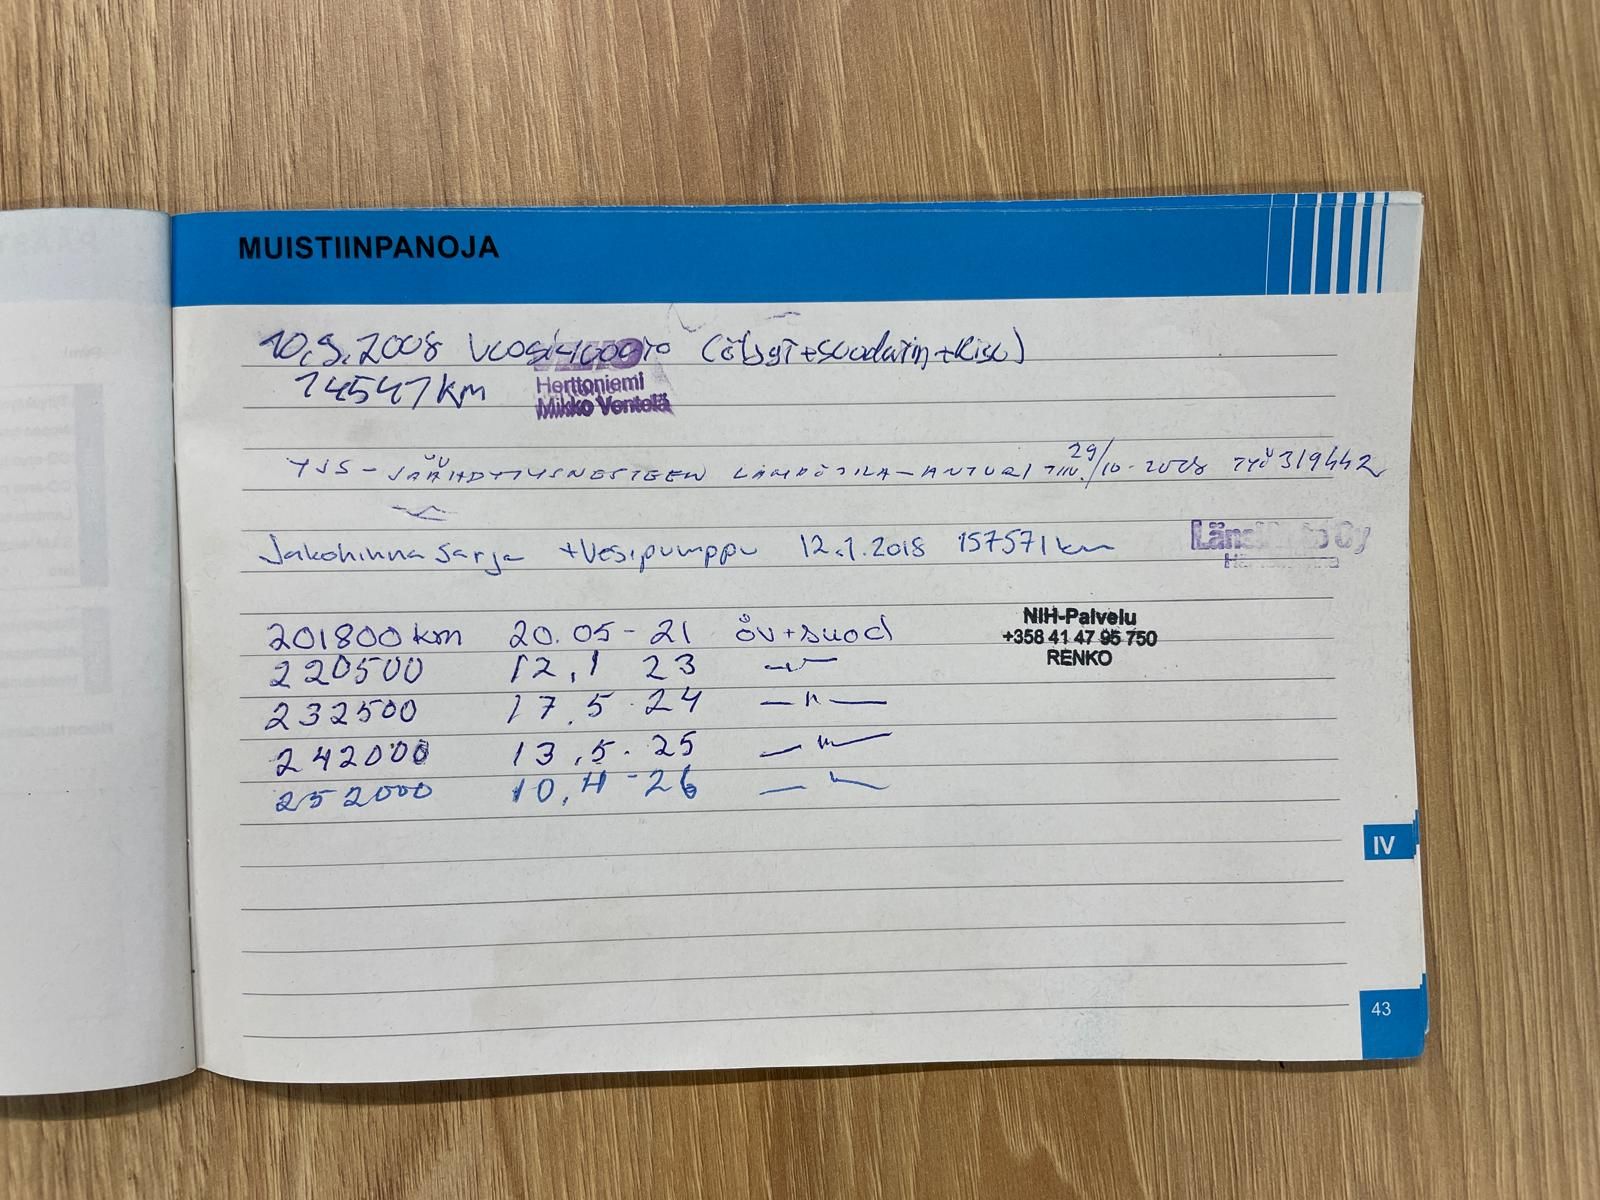 MUISTIINPANOJA
10.9.2008 Vuosihuolto (öljyt+suodatin+Kisu)
14547 km
VEHO
Herttoniemi
Mikko Ventelä
YJS - JÄÄHDYTYSNESTEEN LÄMPÖTILA-ANTURI 29/10-2008 TYÖ 319442
Jakohinna sarja +Vesipumppu 12.1.2018 157571 km
Länsi Auto Oy
201800 km 20.05-21 öv+suod
NIH-Palvelu
+358 41 47 95 750
RENKO
220500 12.1 23 -"-
232500 17.5.24 -"-
242000 13.5.25 -"-
252000 10.4-26 -"-
IV
43